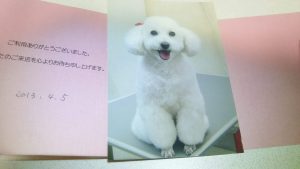 ご利用ありがとうございました。
たのご来店を心よりお待ち申し上げます。
2013. 4. 5